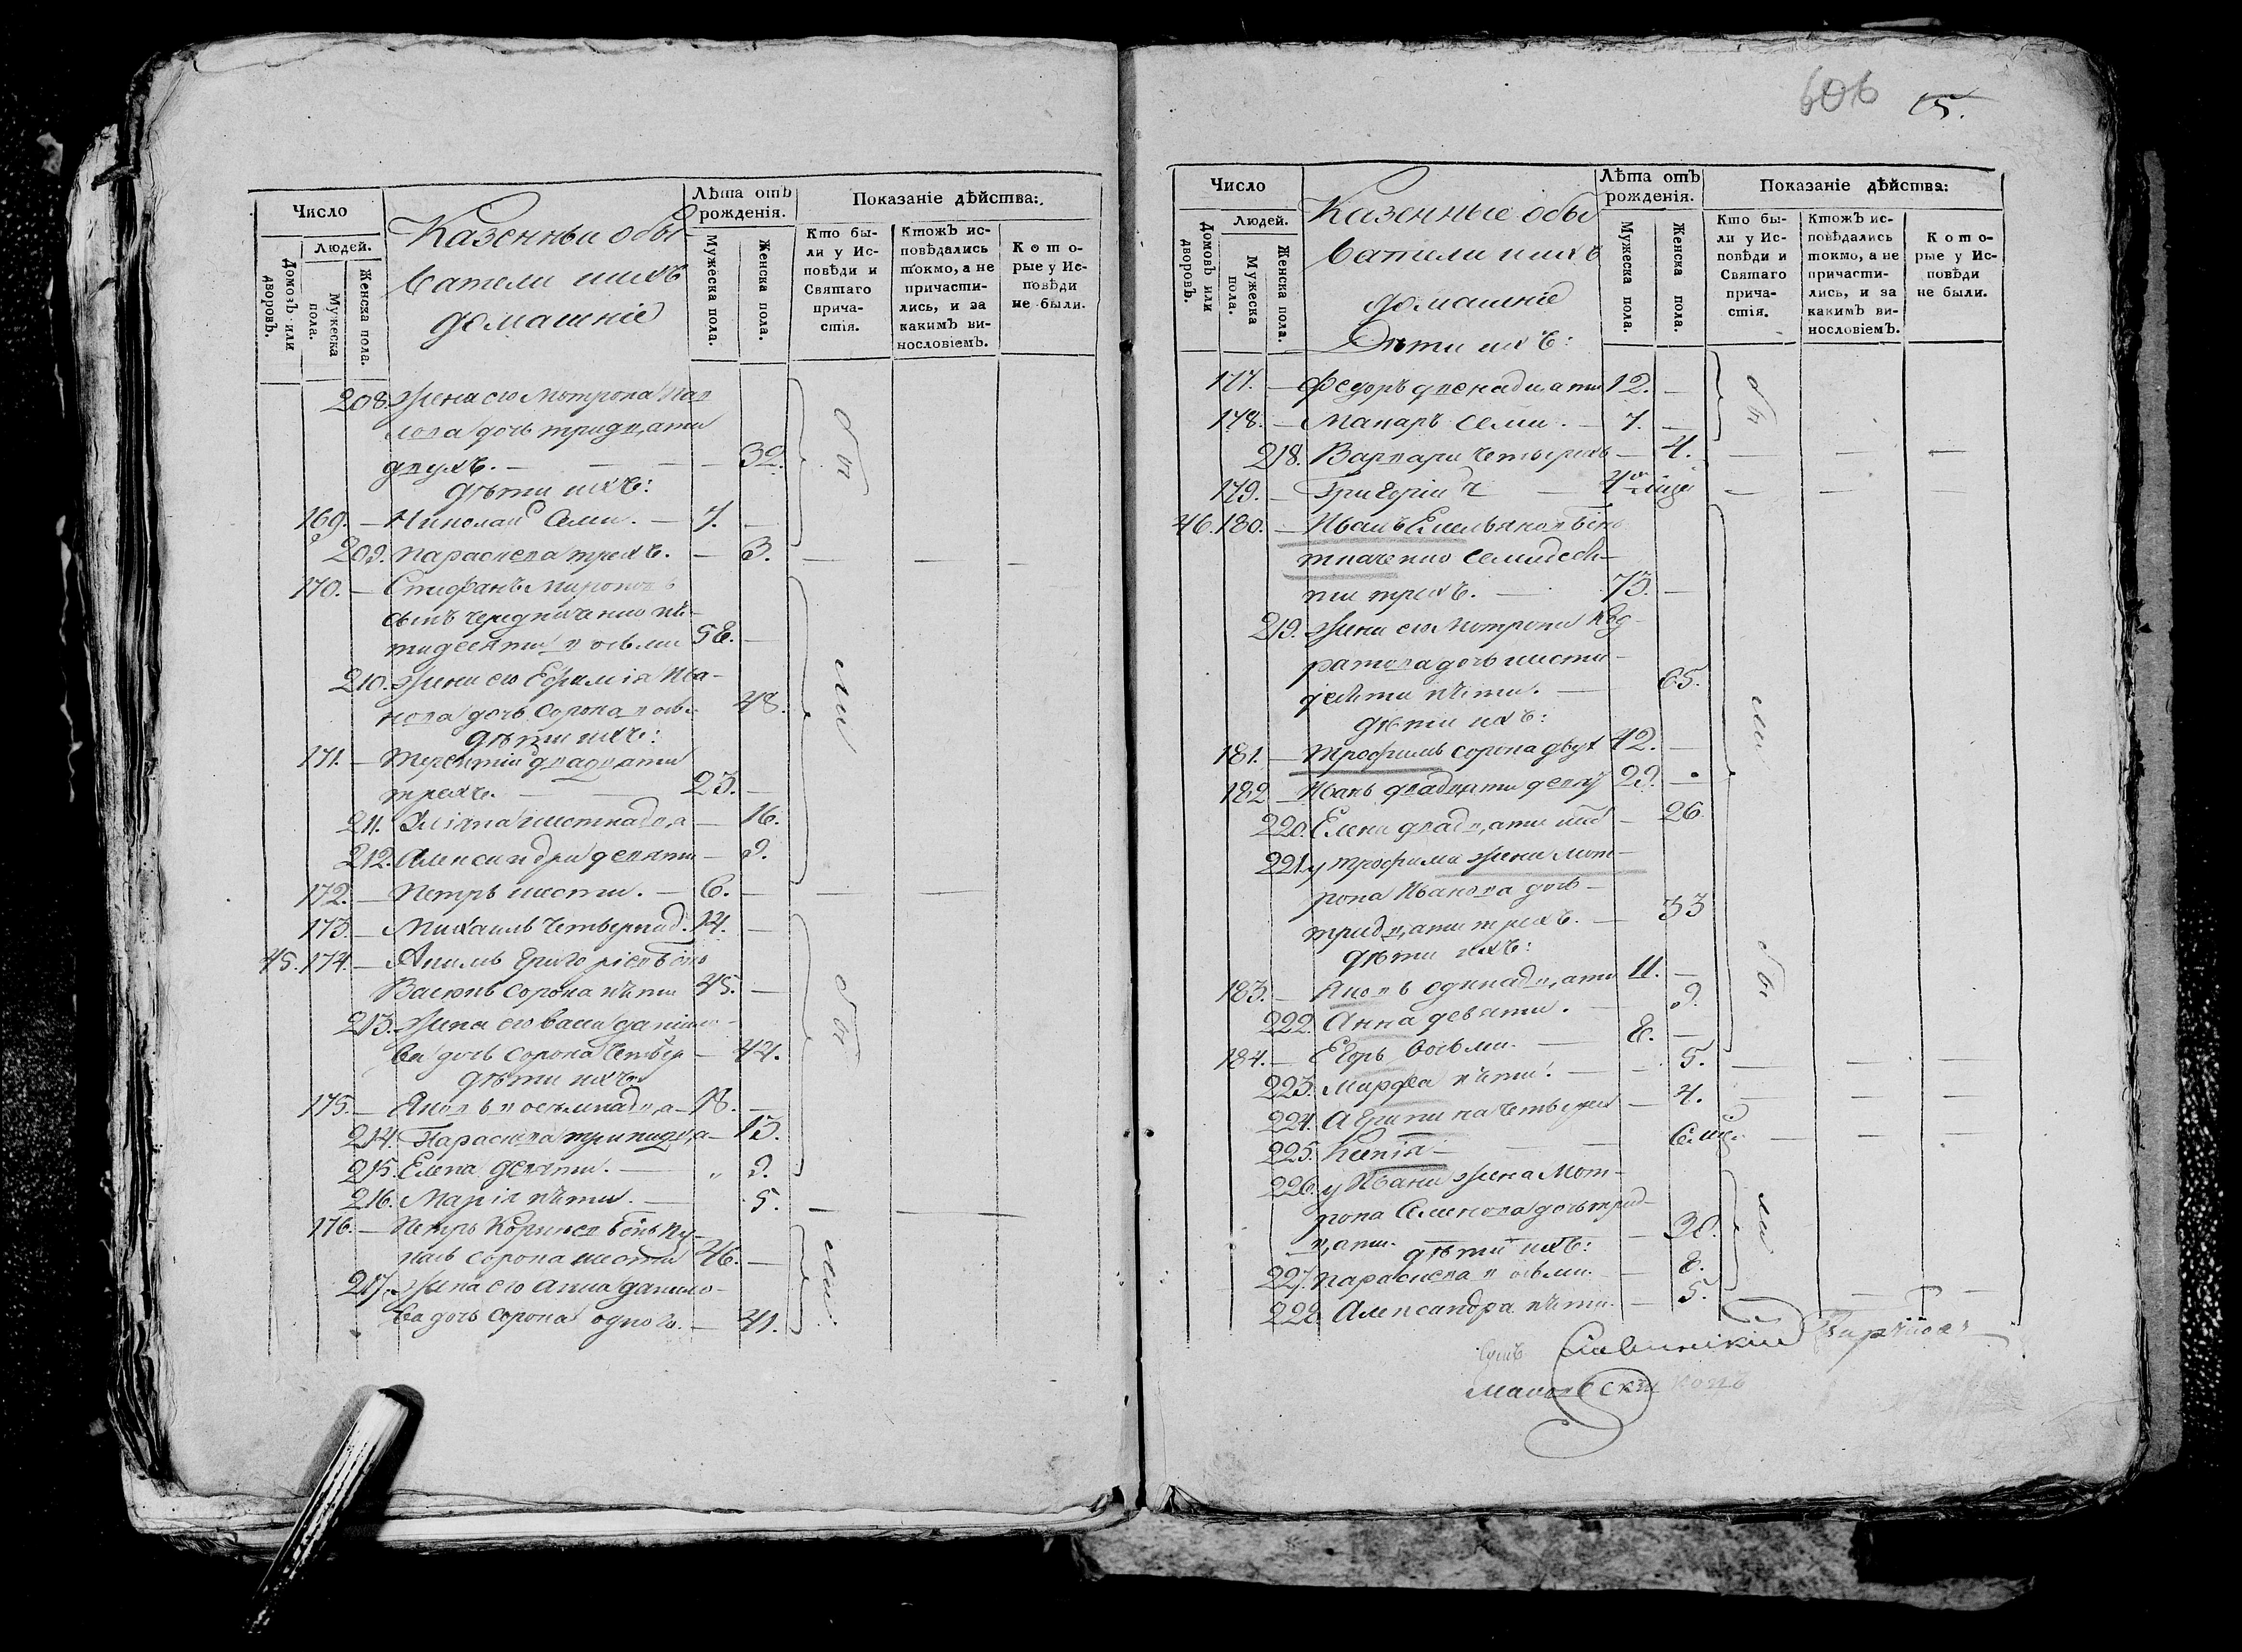 Число
Людей.
Домовъ или дворовъ.
Мужеска пола.
Женска пола.
Казенныи обы-
ватели ихъ
домашніе
Лѣта отъ рожденія.
Мужеска пола.
Женска пола.
Показаніе дѣйства:
Кто были у Исповѣди и Святаго причастія.
Ктожъ исповѣдались токмо, а не причастились, и за какимъ винословіемъ.
Которые у Исповѣди не были.
208. Жена его Мотрона Пав
лова дочь тридцати
двухъ. — 32.
дѣти ихъ:
169. — Николай Семи. — 7. —
209. Параскева трехъ. — 3.
170. — Стефанъ Мироновъ
сынъ чередниченко пя-
тидесяти восьми 58. —
210. Жена его Ефимія Ива-
нова дочь сорока восм 48.
дѣти ихъ:
171. — Терентій двадцати
трехъ. — 23. —
211. шестнадца — 16.
212. Александра девяти — 9.
172. — Петръ шести. — 6. —
173. — Михаилъ Четвернад. 14. —
45. 174. — Акимъ Григоріевъ снъ
Васюкъ сорока пяти 45. —
213. Жена его данило-
ва дочь сорока Четыр — 44.
дѣти ихъ
175. — Яковъ восемнадца — 18. —
214. Параскева тринадца — 13.
215. Елена девяти. — 9.
216. Марія пяти. — 5.
176. — Петръ снъ
сорока шести 46. —
217. Жена его Анна данило-
ва дочь сорока одного. — 41.
бы
ли
бы
ли
606
15.
Число
Людей.
Домовъ или дворовъ.
Мужеска пола.
Женска пола.
Казенные обы
ватели ихъ
домашніе
Дѣти ихъ:
Лѣта отъ рожденія.
Мужеска пола.
Женска пола.
Показаніе дѣйства:
Кто были у Исповѣди и Святаго причастія.
Ктожъ исповѣдались токмо, а не причастились, и за какимъ винословіемъ.
Которые у Исповѣди не были.
177. — Федоръ двенадцати 12. —
178. — Макаръ семи. — 7. —
218. Варвара четырехъ — 4.
179. — Григорій
46. 180. — Иванъ Емельяновъ снъ
ткаченко семидеся-
ти трехъ. — 73. —
219. Жена его Мотрона Код-
ратова дочь шести-
десяти пяти. — 65.
дѣти ихъ:
181. — Трофимъ сорока двух 42. —
182. — Иванъ двадцати девят 29. —
220. Елена двадцати шес — 26
221. у трофима жена Мот-
рона Иванова дочь —
тридцати трехъ. — 33
дѣти ихъ:
183. — Яковъ одинадцати 11. —
222. Анна девяти. — 9.
184. — Егоръ Восьми. — 8. —
223. Марфа пяти. — 5.
224. Агрипина четырех — 4.
225. Ксенія —
226. у Ивана жена Мот-
рона Семенова дочь трид-
цати. — 30.
дѣти ихъ:
227. Параскева восьми. — 8.
228. Александра пяти. — 5.
бы
ли
бы
ли